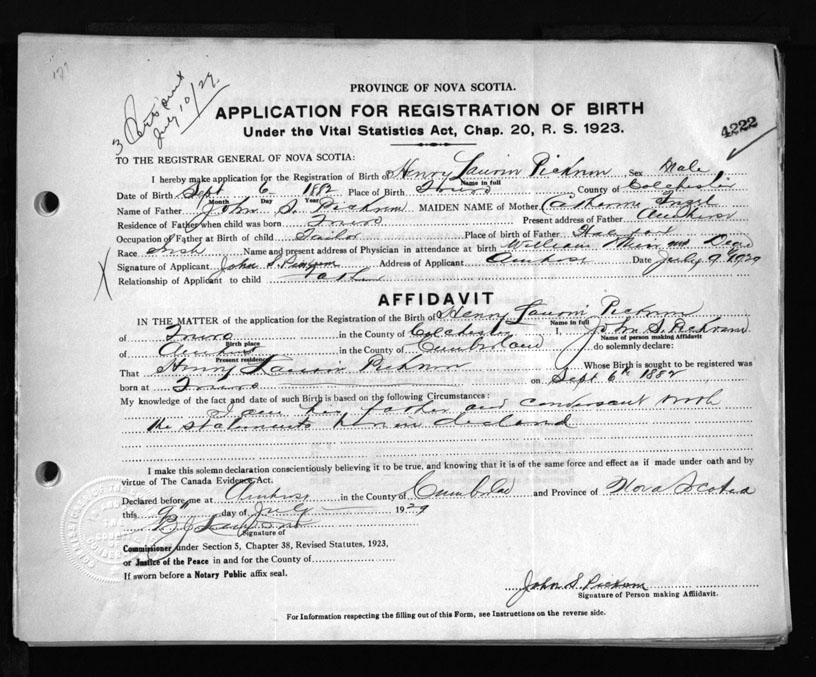 July 10/29
PROVINCE OF NOVA SCOTIA.
APPLICATION FOR REGISTRATION OF BIRTH
Under the Vital Statistics Act, Chap. 20, R. S. 1923.
4222
TO THE REGISTRAR GENERAL OF NOVA SCOTIA:
I hereby make application for the Registration of Birth of Henry Sex Male
Name in full
Date of Birth Sept 6 1882 Place of Birth Truro County of Colchester
Month Day Year
Name of Father John S. MAIDEN NAME of Mother Catharine
Residence of Father when child was born Truro Present address of Father Amherst
Occupation of Father at Birth of child Tailor Place of birth of Father
Race Irish Name and present address of Physician in attendance at birth William Muir
Signature of Applicant John S. Address of Applicant Amherst Date July 9 1929
Relationship of Applicant to child Father
AFFIDAVIT
IN THE MATTER of the application for the Registration of the Birth of Henry
Name in full
of Truro in the County of Colchester I, John S.
Birth place Name of person making Affidavit
of Amherst in the County of Cumberland do solemnly declare:
Present residence
That Henry Whose Birth is sought to be registered was
born at Truro on Sept 6th 1882
My knowledge of the fact and date of such Birth is based on the following Circumstances:
I am his father and conversant with
the statements herein declared
I make this solemn declaration conscientiously believing it to be true, and knowing that it is of the same force and effect as if made under oath and by
virtue of The Canada Evidence Act.
Declared before me at Amherst in the County of Cumberland and Province of Nova Scotia
this 9th day of July 1929
Signature of
Commissioner under Section 5, Chapter 38, Revised Statutes, 1923,
or Justice of the Peace in and for the County of
If sworn before a Notary Public affix seal.
John S.
Signature of Person making Affidavit.
For Information respecting the filling out of this Form, see Instructions on the reverse side.